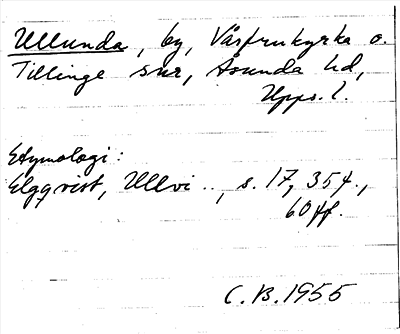 Ullunda, by, Vårfrukyrka o.
Tillinge snr, Åsunda hd,
Upps. l.
Etymologi:
Elgqvist, Ullvi.., s. 17, 35 f.,
60 ff.
C. B. 1955